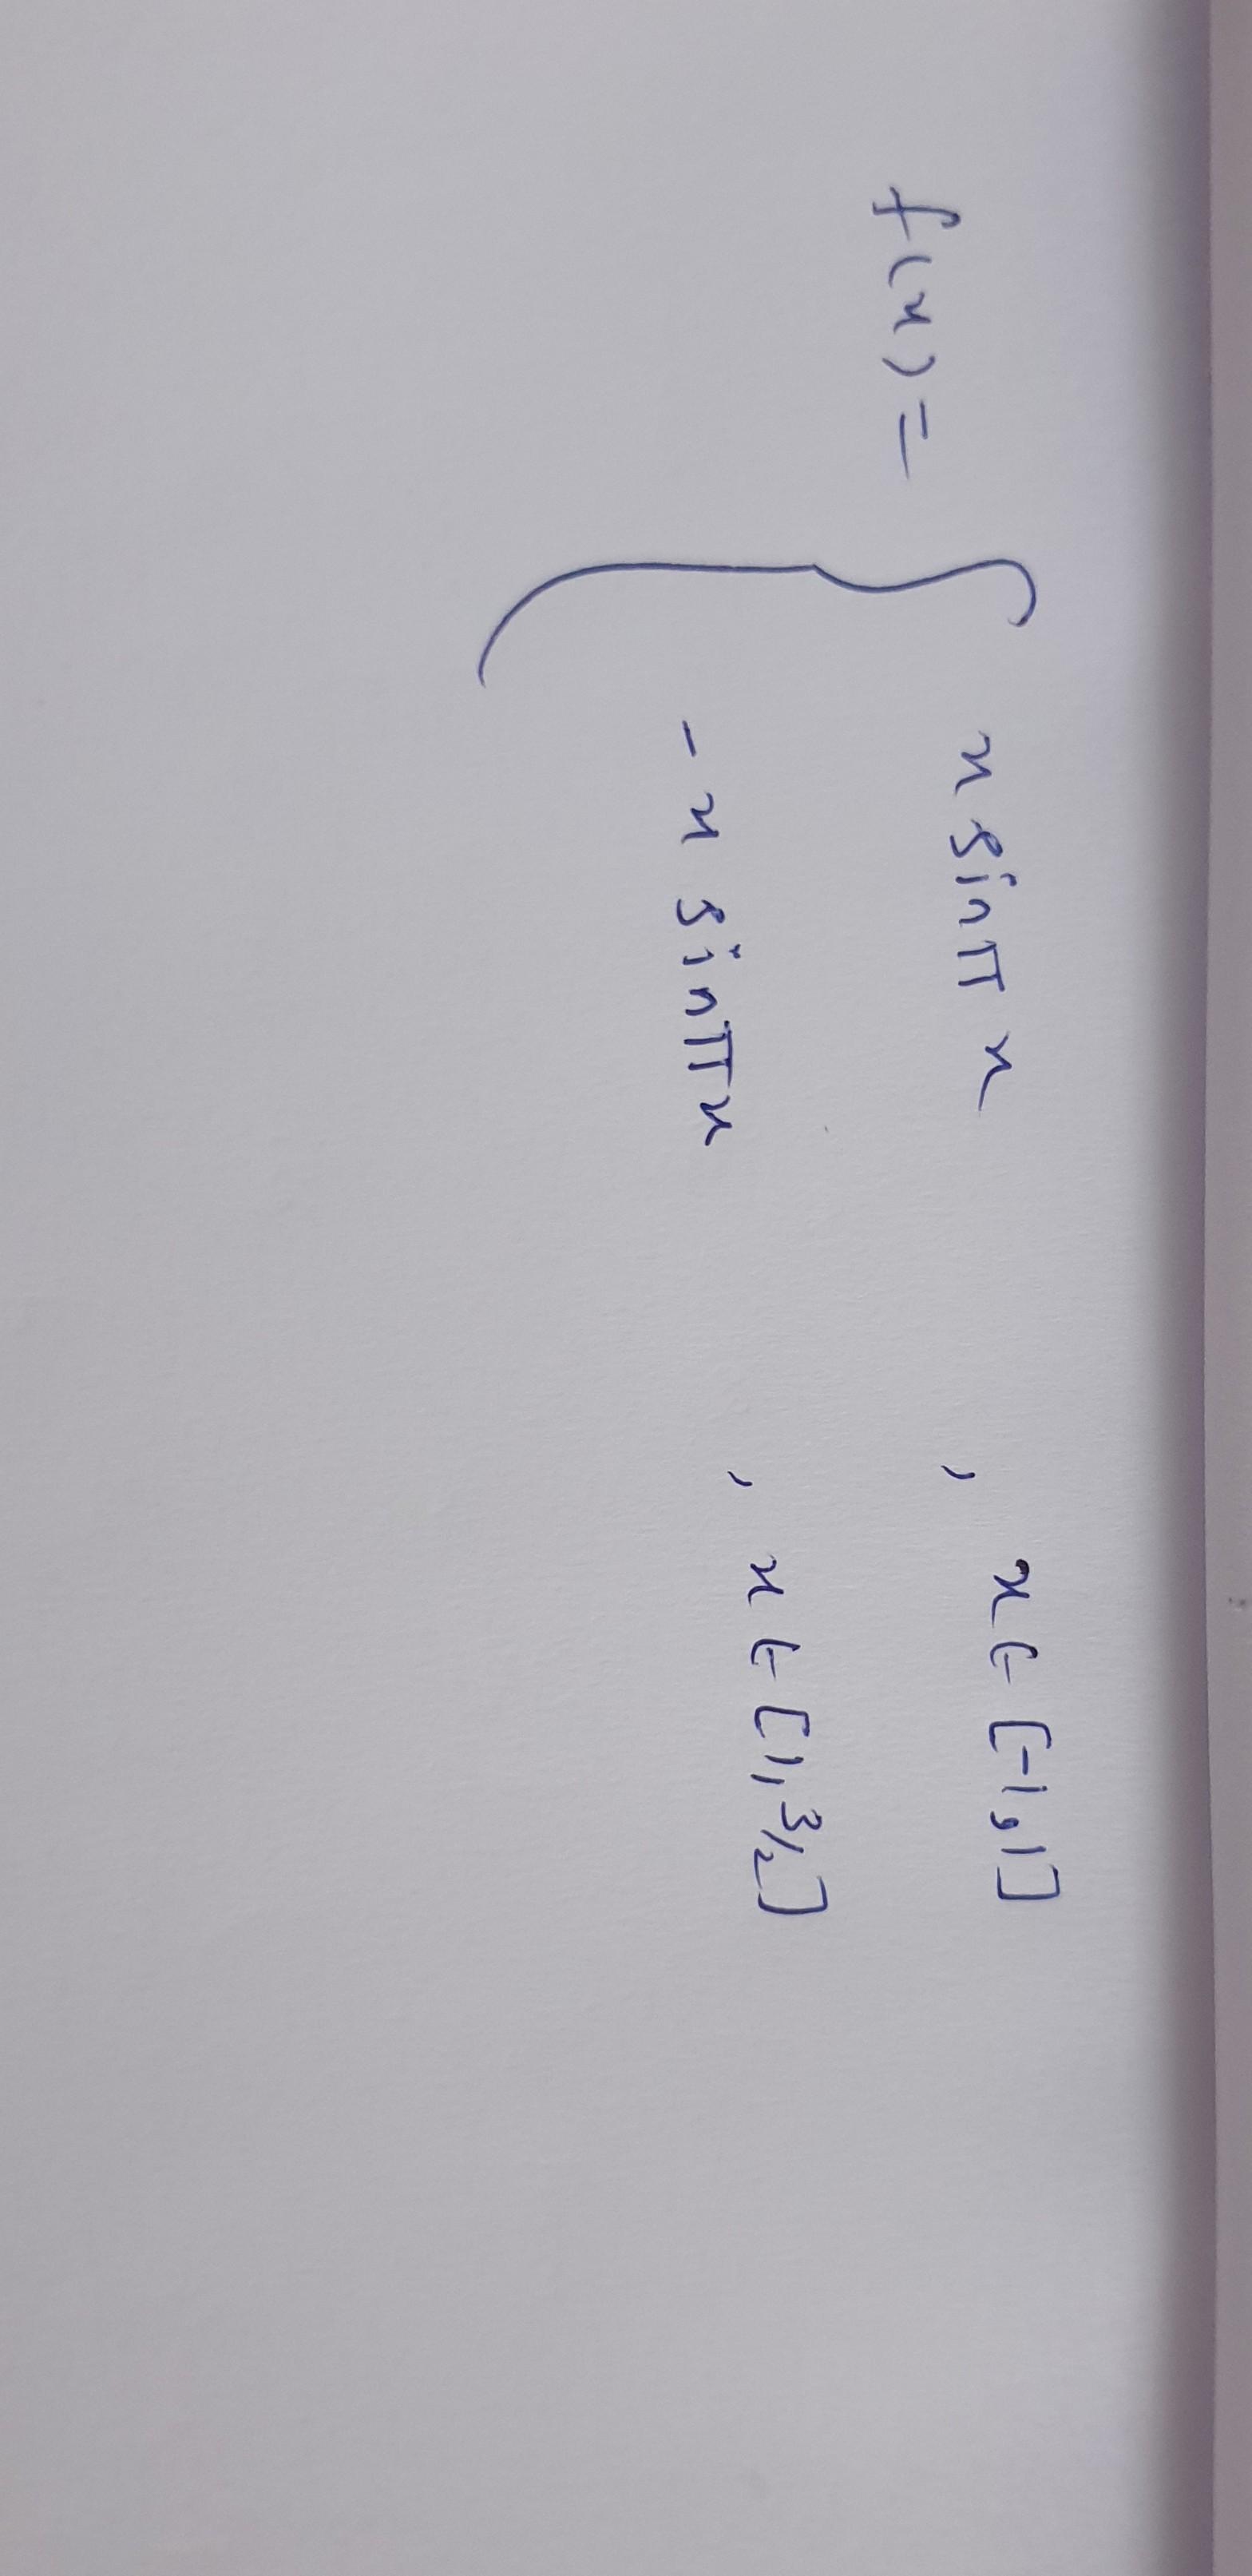 f(x) = { x sinπ x , x ∈ [-1,1]
- x sinπx , x ∈ [1, 3/2]